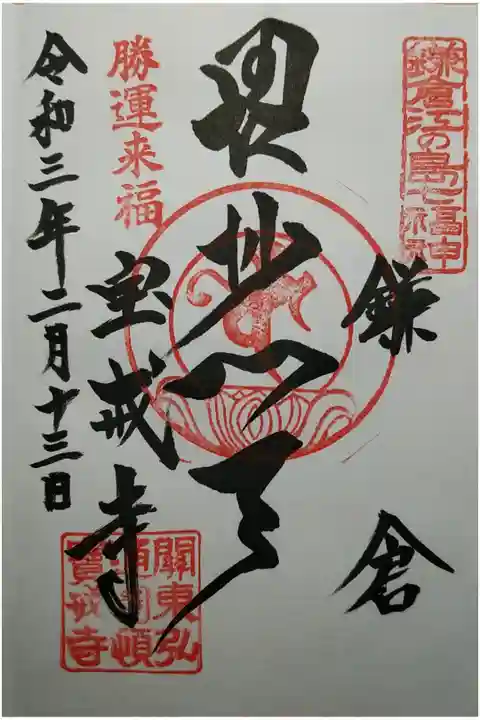 鎌倉江の島七福神
鎌倉
毘沙門天
勝運来福
宝戒寺
關東弘
通圓頓
寶戒寺
令和三年二月十三日